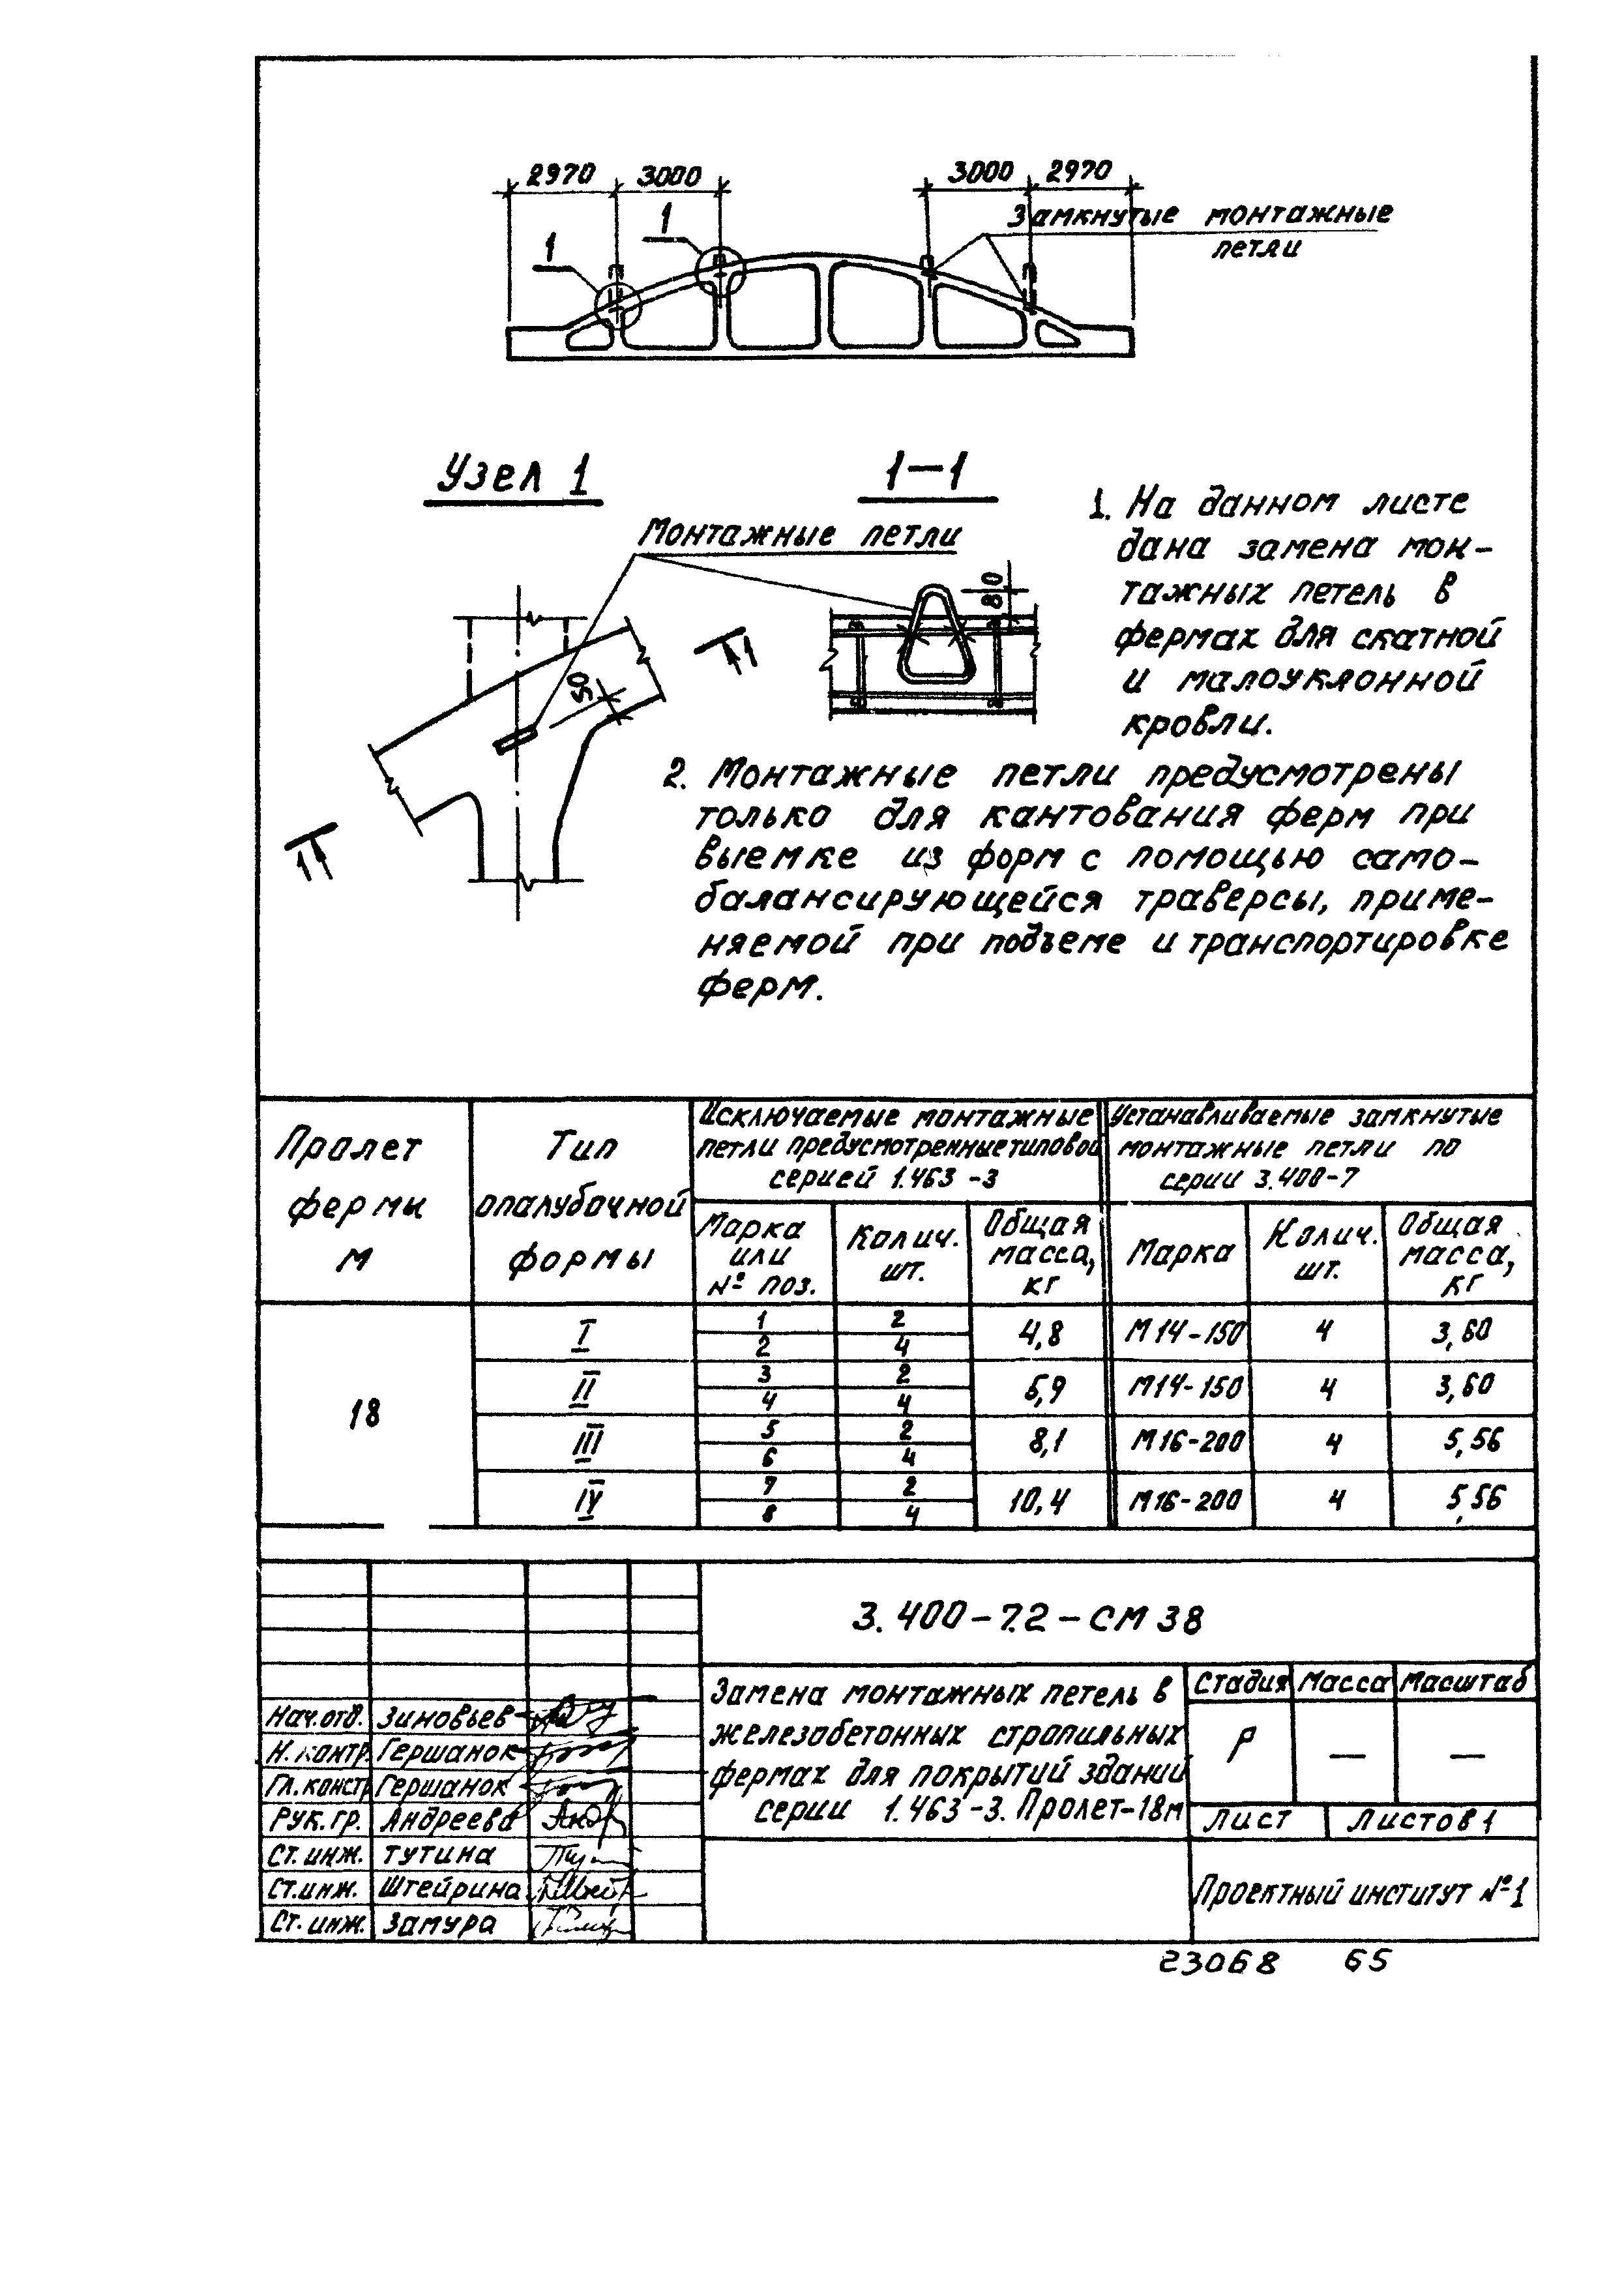 2970 3000 3000 2970
1 1
Замкнутые монтажные
петли
Узел 1
1-1
Монтажные петли
80
50
1 1
1. На данном листе
дана замена мон-
тажных петель в
фермах для скатной
и малоуклонной
кровли.
2. Монтажные петли предусмотрены
только для кантования ферм при
выемке из форм с помощью само-
балансирующейся траверсы, приме-
няемой при подъеме и транспортировке
ферм.
Пролет
фермы
м
Тип
опалубочной
формы
Исключаемые монтажные
петли предусмотренные типовой
серией 1.463-3
Устанавливаемые замкнутые
монтажные петли по
серии 3.400-7
Марка
или
№ поз.
Колич.
шт.
Общая
масса,
кг
Марка
Колич.
шт.
Общая
масса,
кг
18
I 1 2 4,8 М14-150 4 3,60
2 4
II 3 2 5,9 М14-150 4 3,60
4 4
III 5 2 8,1 М16-200 4 5,56
6 4
IV 7 2 10,4 М16-200 4 5,56
8 4
3.400-7.2-СМ 38
Замена монтажных петель в
железобетонных стропильных
фермах для покрытий зданий
серии 1.463-3. Пролет-18м
Стадия Масса Масштаб
Р — —
Лист Листов 1
Проектный институт №1
Нач.отд. Зиновьев
Н. контр. Гершанок
Гл. констр. Гершанок
Рук. гр. Андреева
Ст. инж. Тутина
Ст. инж. Штейрина
Ст. инж. Замура
23068 65